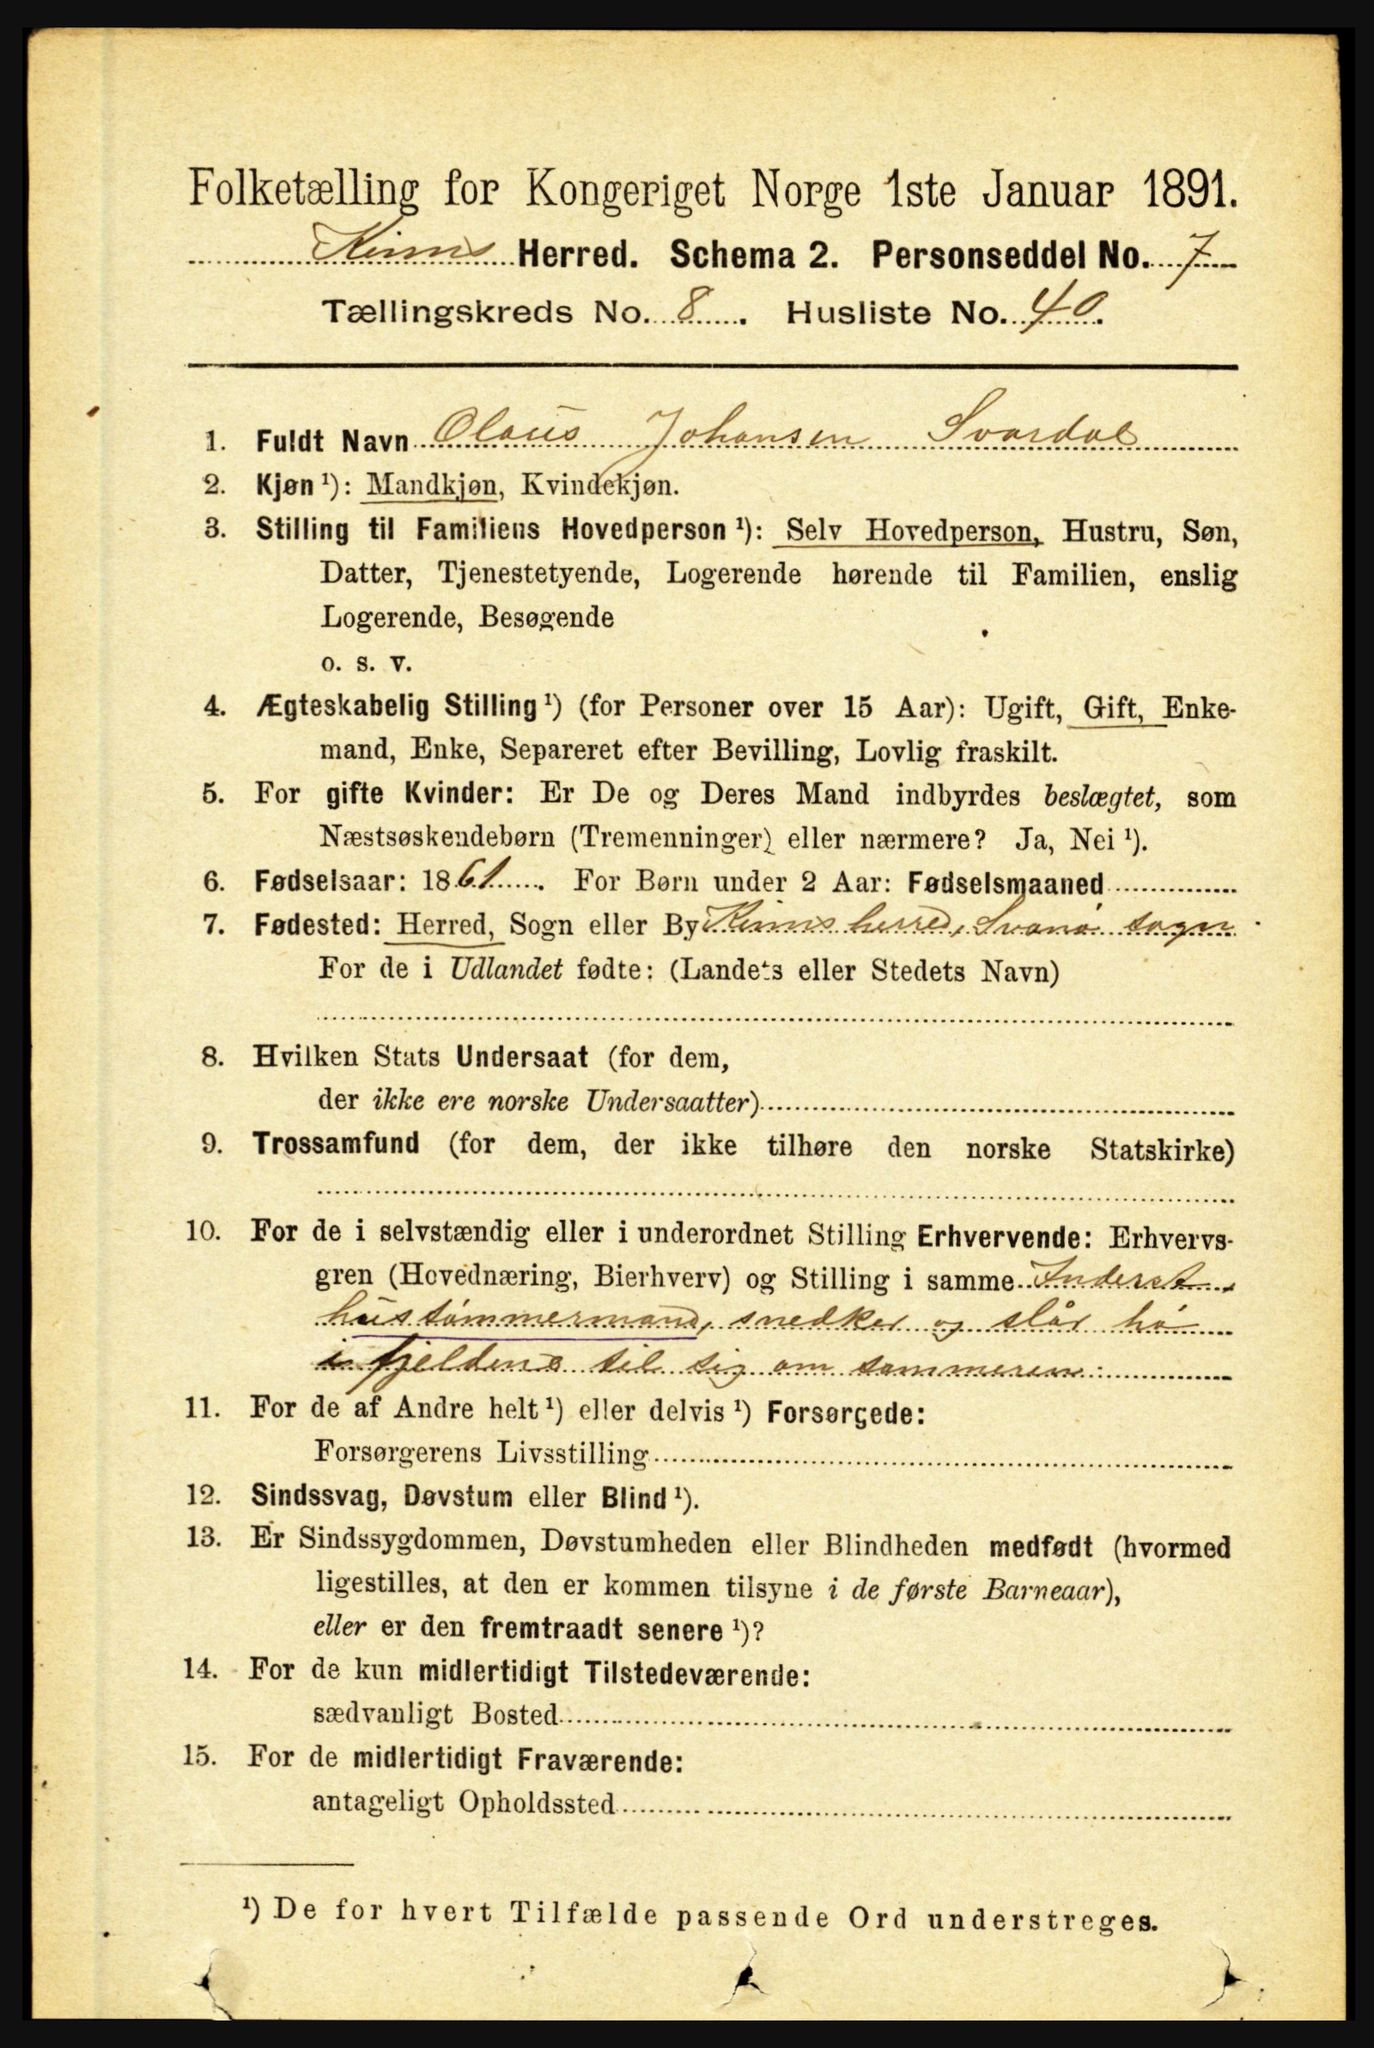 Folketælling for Kongeriget Norge 1ste Januar 1891.
Kinns Herred. Schema 2. Personseddel No. 7
Tællingskreds No. 8. Husliste No. 40.
1. Fuldt Navn Olaus Johansen Svardal
2. Kjøn ¹): Mandkjøn, Kvindekjøn.
3. Stilling til Familiens Hovedperson ¹): Selv Hovedperson, Hustru, Søn,
Datter, Tjenestetyende, Logerende hørende til Familien, enslig
Logerende, Besøgende
o. s. v.
4. Ægteskabelig Stilling ¹) (for Personer over 15 Aar): Ugift, Gift, Enke-
mand, Enke, Separeret efter Bevilling, Lovlig fraskilt.
5. For gifte Kvinder: Er De og Deres Mand indbyrdes beslægtet, som
Næstsøskendebørn (Tremenninger) eller nærmere? Ja, Nei ¹).
6. Fødselsaar: 1861. For Børn under 2 Aar: Fødselsmaaned
7. Fødested: Herred, Sogn eller By Kinns herred, Svanø sogn
For de i Udlandet fødte: (Landets eller Stedets Navn)
8. Hvilken Stats Undersaat (for dem,
der ikke ere norske Undersaatter)
9. Trossamfund (for dem, der ikke tilhøre den norske Statskirke)
10. For de i selvstændig eller i underordnet Stilling Erhvervende: Erhvervs-
gren (Hovednæring, Bierhverv) og Stilling i samme Inderst,
hustømmermand, snedker og slår hø
i fjeldene til sig om sommeren.
11. For de af Andre helt ¹) eller delvis ¹) Forsørgede:
Forsørgerens Livsstilling
12. Sindssvag, Døvstum eller Blind ¹).
13. Er Sindssygdommen, Døvstumheden eller Blindheden medfødt (hvormed
ligestilles, at den er kommen tilsyne i de første Barneaar),
eller er den fremtraadt senere ¹)?
14. For de kun midlertidigt Tilstedeværende:
sædvanligt Bosted
15. For de midlertidigt Fraværende:
antageligt Opholdssted
¹) De for hvert Tilfælde passende Ord understreges.